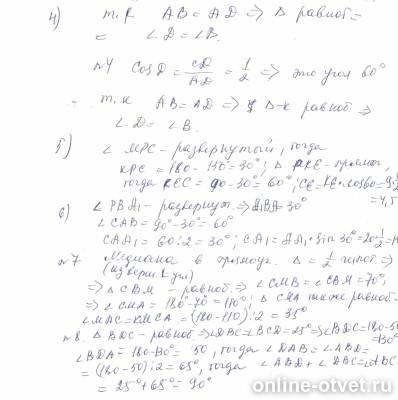 4) т.к AB = AD => Δ равноб =
= ∠D = ∠B.
№4 CosD = CD/AD = 1/2 => это угол 60°
т.к AB = AD => Δ-к равноб =>
∠D = ∠B.
5) ∠ MPC - развернутый, тогда
KPE = 180 - 150 = 30°; Δ PKE - прямоуг,
тогда KEC = 90 - 30 = 60°; CE = KE · cos60 = 9·1/2
= 4,5
6) ∠ PBA₁ - развернут => ABA = 30°
∠ CAB = 90° - 30 = 60°
CAA₁ = 60:2 = 30°; CA₁ = AA₁ · sin 30° = 20·1/2 =
№7 Медиана в прямоуг. Δ = 1/2 гипот. =>
(из верш. ∠ угл)
=> Δ CBM - равноб. => ∠CMB = ∠CBM = 70°,
=> ∠CMA = 180° - 70° = 110°; Δ CMA также равноб -
∠MAC = ∠MCA = (180 - 110):2 = 35°
№8. Δ BDC - равноб => ∠DBC = ∠BCD = 25° => ∠BDC = 180 - 50 =
= 130°
∠BDA = 180 - 130 = 50, тогда ∠DAB = ∠ABD =
= (180 - 50):2 = 65°, тогда ∠ABD + ∠DBC = ∠ABC
= 25° + 65° = 90°
online-otvet.ru